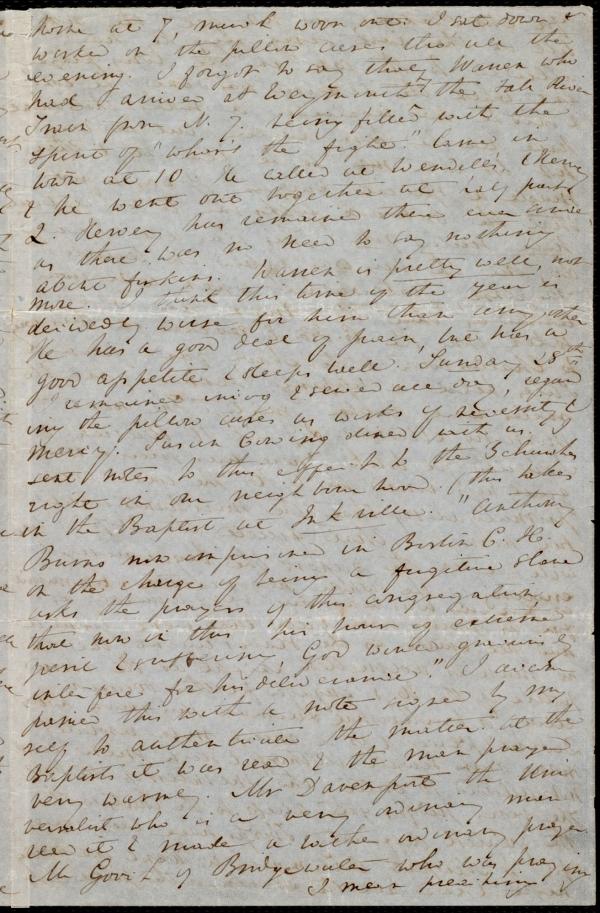 home at 7, much worn out. I sat down &
worked on the pillow cases tho all the
evening. I forgot to say that Warren who
had arrived at Weymouth by the Fall River
Train from N. Y. being filled with the
spirit of "where's the fight." Came in
town at 10. He called at Wendell's, Henry
& he went out together at half past
2. Hervey has remained there ever since
as there was no need to say nothing
about firkins. Warren is pretty well, not
more. I think this time of the year is
decidedly worse for him than any other
He has a good deal of pain, but has a
good appetite & sleeps well. Sunday 28th
I remained in & sewed all day, regard
ing the pillow cases as works of necessity &
mercy. Susan Cowing dined with us. I
sent notes to this effect to the 3 churches
right in our neighbourhood. (this takes
in the Baptist at Ink ville. "Anthony
Burns now imprisoned in Boston C. H.
on the charge of being a fugitive slave
asks the prayers of this congregation,
that now in this his hour of extreme
peril & suffering, God would graciously
interfere for his deliverance." I accom
panied this with a note signed by my
self to authenticate the matter. At the
Baptists it was read & the man prayed
very warmly. Mr Davenport the Uni
versalist who is a very ordinary man
read it & made a rather ordinary prayer
Mr of Bridgewater who was praying
I mean preaching